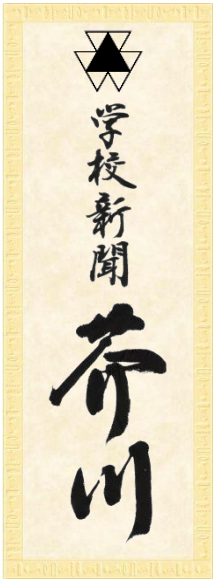 学校新聞
芥川